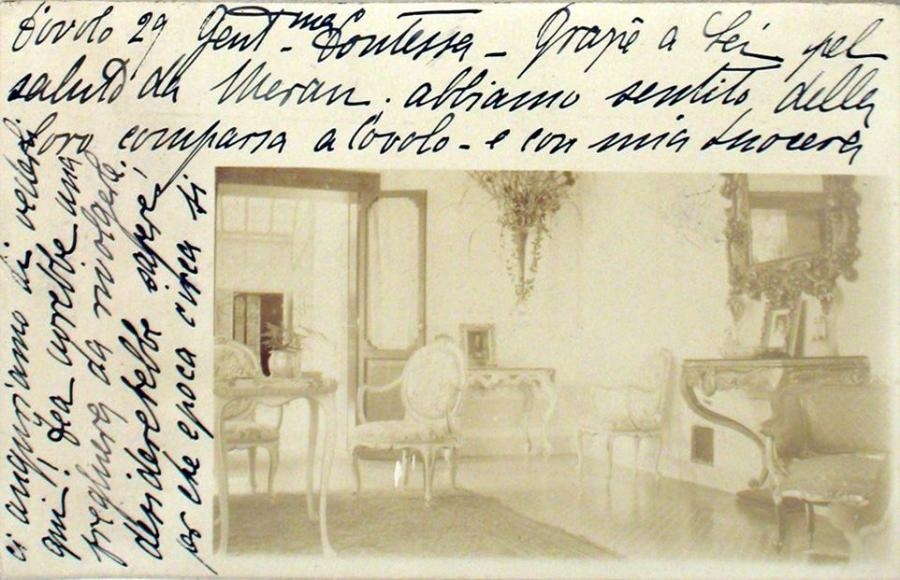 Covolo 29 Gent.ma Contessa - Grazie a Lei pel
saluto da Meran. abbiamo sentito della
loro comparsa a Covolo - e con mia suocera
ci auguriamo di vederli
qui! Lea avrebbe una
preghiera da rivolgerle.
desidererebbe sapere
per che epoca circa si